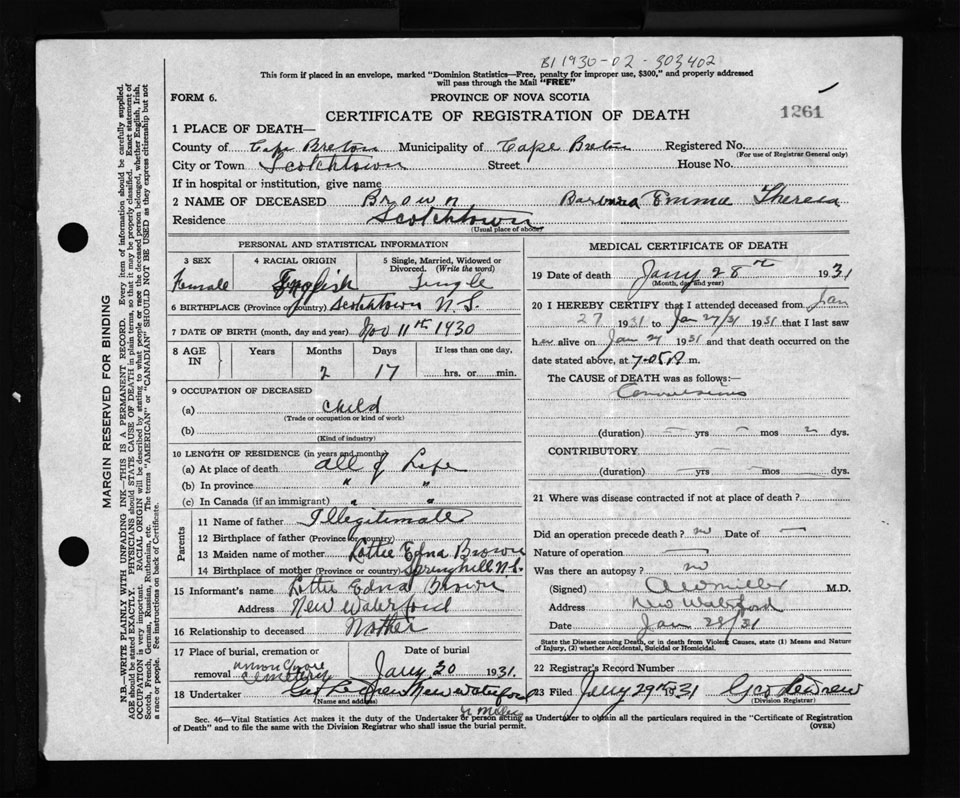 B1 1930-02-303402
This form if placed in an envelope, marked "Dominion Statistics—Free, penalty for improper use, $300," and properly addressed
will pass through the Mail "FREE"
FORM 6.
PROVINCE OF NOVA SCOTIA
1261
CERTIFICATE OF REGISTRATION OF DEATH
1 PLACE OF DEATH—
County of Cape Breton Municipality of Cape Breton Registered No.
(For use of Registrar General only)
City or Town Scotchtown Street House No.
If in hospital or institution, give name
2 NAME OF DECEASED Brown Barbara Emma Theresa
Residence Scotchtown
(Usual place of abode)
PERSONAL AND STATISTICAL INFORMATION
3 SEX 4 RACIAL ORIGIN 5 Single, Married, Widowed or
Divorced. (Write the word)
Female English Single
6 BIRTHPLACE (Province or country) Scotchtown N.S.
7 DATE OF BIRTH (month, day and year) Nov 11th 1930
8 AGE IN Years Months Days If less than one day,
2 17 hrs. or min.
9 OCCUPATION OF DECEASED
(a) child
(Trade or occupation or kind of work)
(b)
(Kind of industry)
10 LENGTH OF RESIDENCE (in years and months)
(a) At place of death all of Life
(b) In province " "
(c) In Canada (if an immigrant) " "
Parents
11 Name of father Illegitimate
12 Birthplace of father (Province or country)
13 Maiden name of mother Lottie Edna Brown
14 Birthplace of mother (Province or country) Springhill N.S.
15 Informant's name Lottie Edna Brown
Address New Waterford
16 Relationship to deceased Mother
17 Place of burial, cremation or
removal Cemetery
Date of burial
Jany 30 1931.
18 Undertaker New Waterford
(Name and address)
MEDICAL CERTIFICATE OF DEATH
19 Date of death Jany 28th 1931
(Month, day and year)
20 I HEREBY CERTIFY that I attended deceased from Jan
27 1931 to Jan 27/31 1931 that I last saw
her alive on Jan 27 1931 and that death occurred on the
date stated above, at 7.05 m.
The CAUSE of DEATH was as follows:—
Convulsions
(duration) — yrs — mos 2 dys.
CONTRIBUTORY — —
(duration) — yrs — mos — dys.
21 Where was disease contracted if not at place of death?
Did an operation precede death? no Date of —
Nature of operation —
Was there an autopsy? no
(Signed) A W Miller M.D.
Address New Waterford
Date Jan 28/31
State the Disease causing Death, or in death from Violent Causes, state (1) Means and Nature
of Injury, (2) whether Accidental, Suicidal or Homicidal.
22 Registrar's Record Number
23 Filed Jany 29th 31 Geo
(Division Registrar)
Sec. 46—Vital Statistics Act makes it the duty of the Undertaker or person acting as Undertaker to obtain all the particulars required in the "Certificate of Registration
of Death" and to file the same with the Division Registrar who shall issue the burial permit.
(OVER)
MARGIN RESERVED FOR BINDING
N.B.—WRITE PLAINLY WITH UNFADING INK—THIS IS A PERMANENT RECORD. Every item of information should be carefully supplied.
AGE should be stated EXACTLY. PHYSICIANS should STATE CAUSE OF DEATH in plain terms, so that it may be properly classified. Exact statement of
OCCUPATION is very important. RACIAL ORIGIN will be described by stating to what people or race the deceased person belonged, whether English, Irish,
Scotch, French, German, Russian, Ruthenian, etc. The terms "AMERICAN" or "CANADIAN" SHOULD NOT BE USED as they express citizenship but not
a race or people. See instructions on back of Certificate.